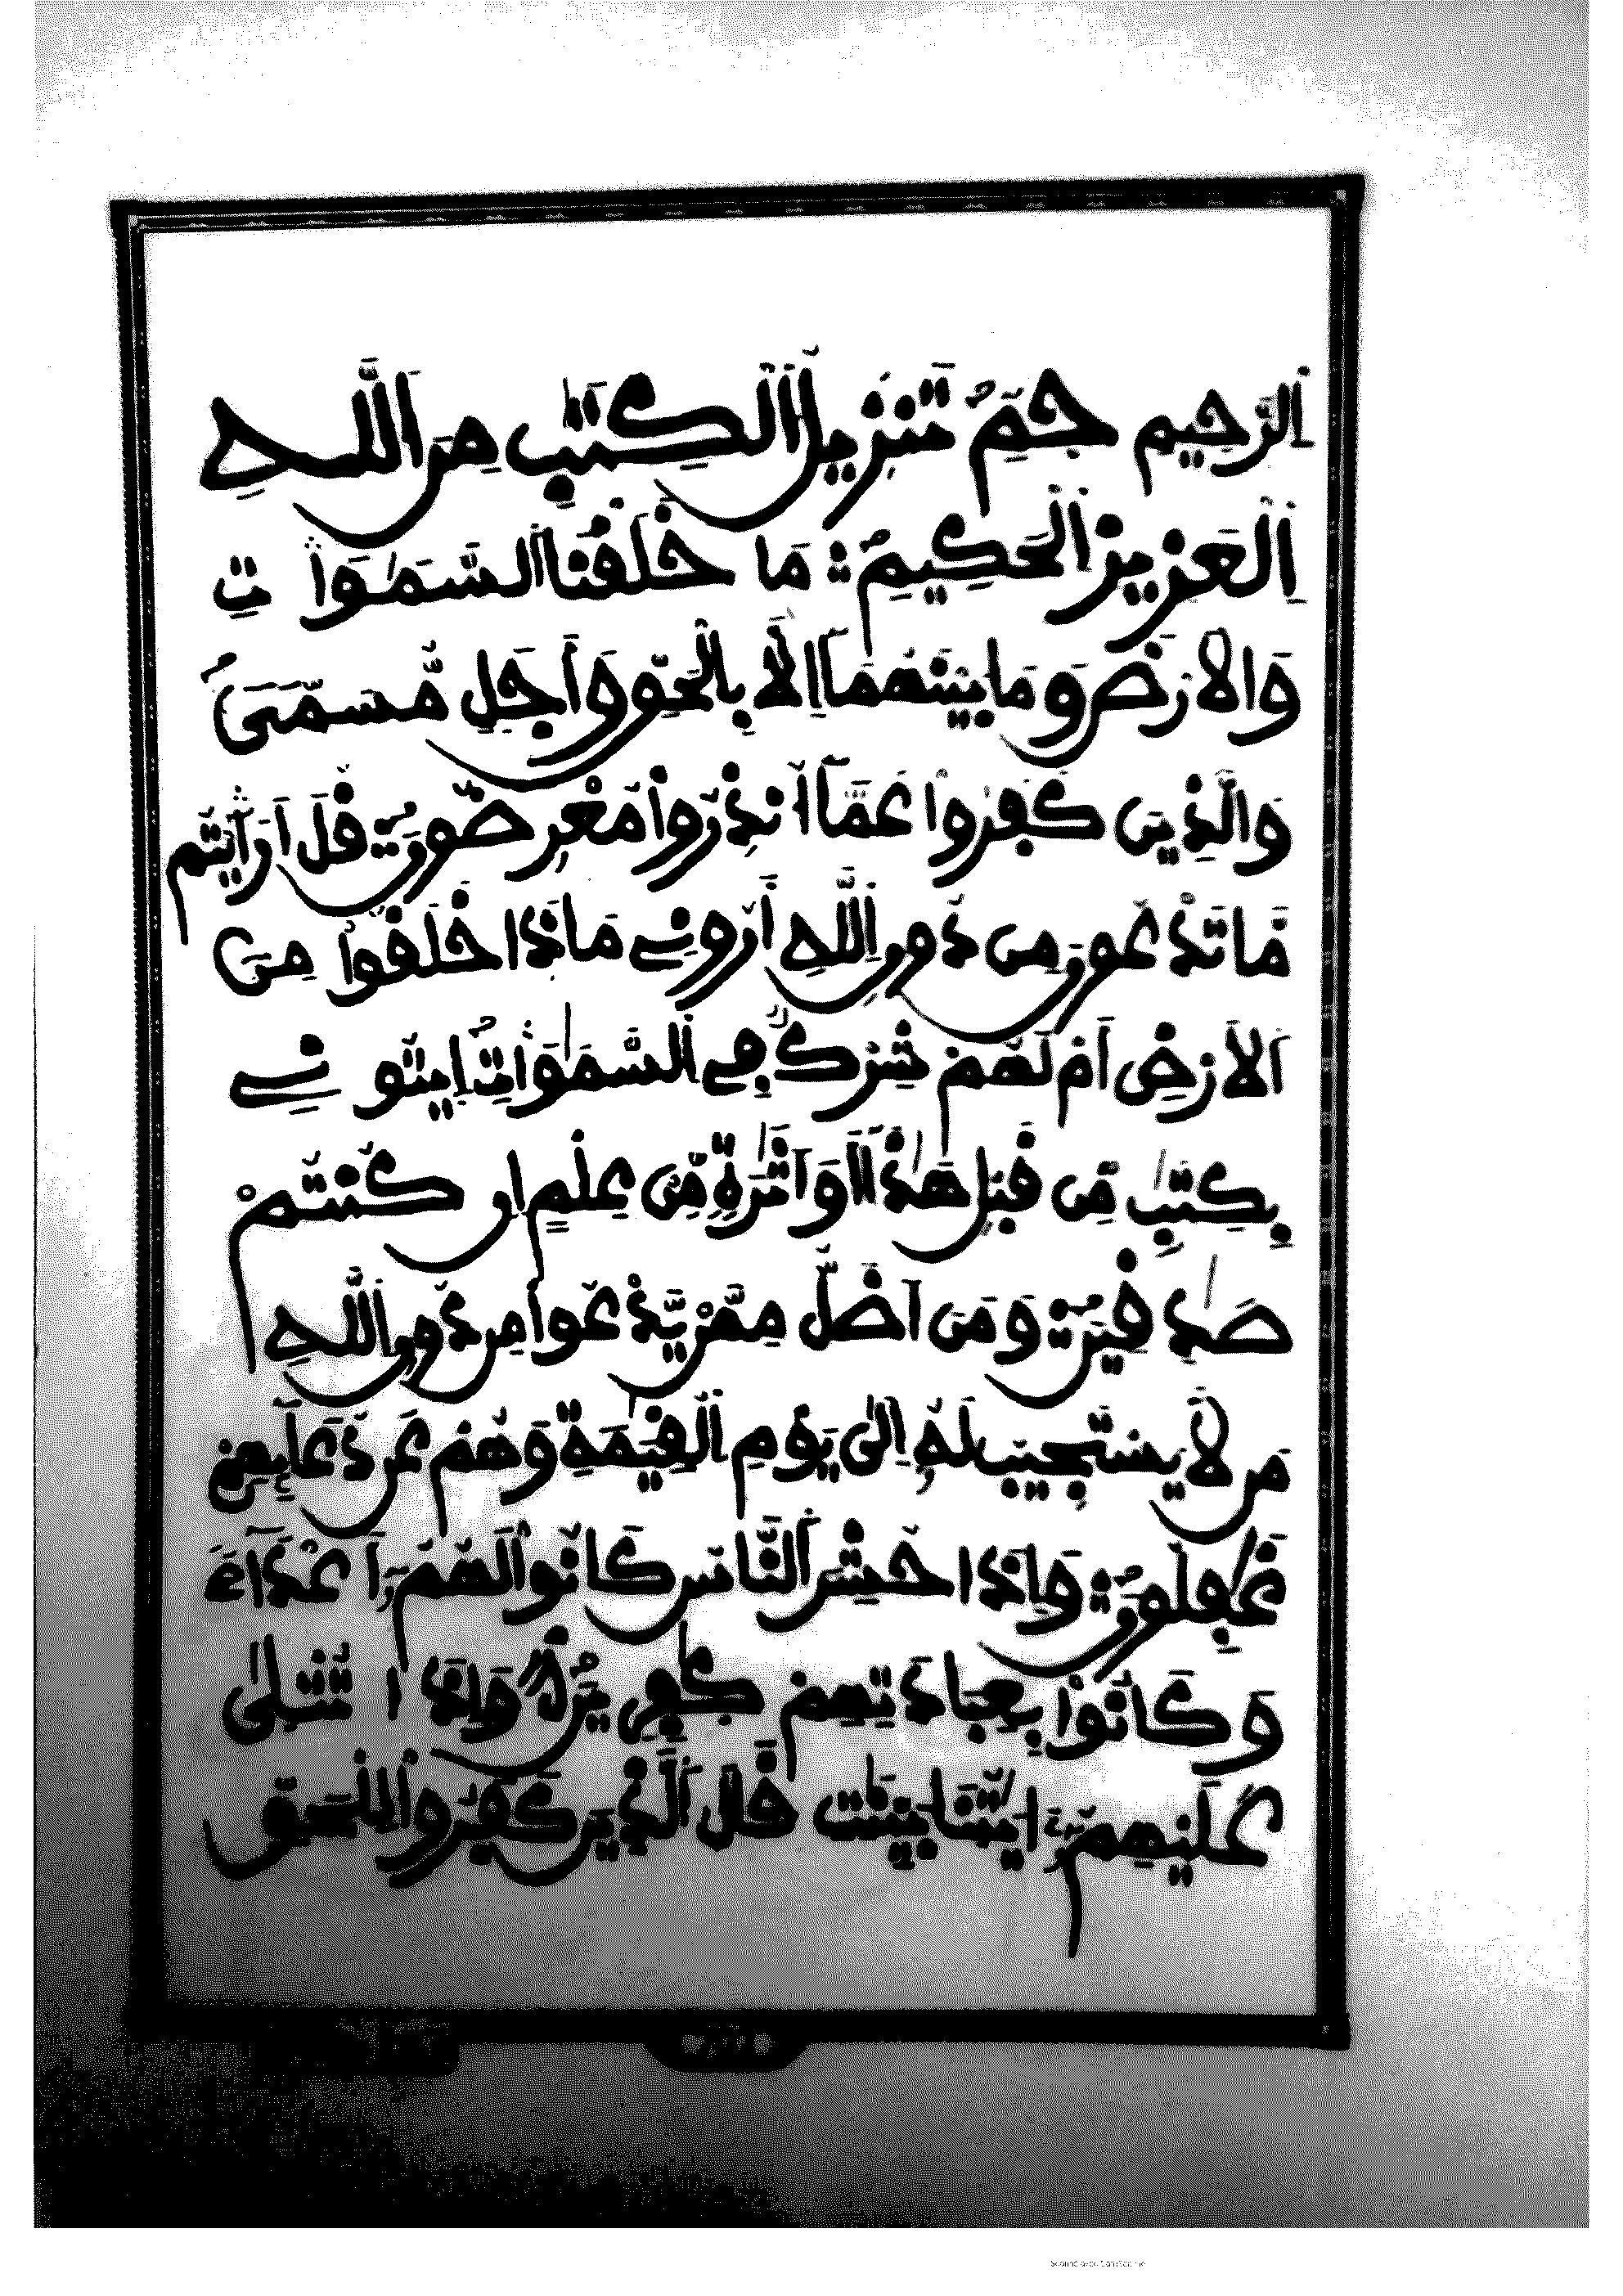 الرَّحِيمِ حَمِّ تَنزِيلُ الْكِتَٰبِ مِنَ اللَّهِ
الْعَزِيزِ الْحَكِيمِ مَا خَلَقْنَا السَّمَٰوَاتِ
وَالْأَرْضَ وَمَا بَيْنَهُمَا إِلَّا بِالْحَقِّ وَأَجَلٍ مُّسَمًّى
وَالَّذِينَ كَفَرُوا عَمَّا أُنذِرُوا مُعْرِضُونَ قُلْ أَرَاَيْتُم
مَّا تَدْعُونَ مِن دُونِ اللَّهِ أَرُونِے مَاذَا خَلَقُوا مِنَ
الْأَرْضِ أَمْ لَهُمْ شِرْكٌ فِے السَّمَٰوَاتِ اِيتُونِے
بِكِتَٰبٍ مِّن قَبْلِ هَٰذَا أَوَ اَثَٰرَةٍ مِّنْ عِلْمٍ اِن كُنتُمْ
صَٰدِقِينَ وَمَنَ اَضَلُّ مِمَّنْ يَّدْعُوا مِن دُونِ اللَّهِ
مَن لَّا يَسْتَجِيبُ لَهُ إِلَىٰ يَوْمِ الْقِيَٰمَةِ وَهُمْ عَن دُعَائِهِمْ
غَٰفِلُونَ وَإِذَا حُشِرَ النَّاسُ كَانُوا لَهُمْ أَعْدَاءً
وَكَانُوا بِعِبَادَتِهِمْ كَٰفِرِينَ وَإِذَا تُتْلَىٰ
عَلَيْهِمْ ءَايَٰتُنَا بَيِّنَٰتٍ قَالَ الَّذِينَ كَفَرُوا لِلْحَقِّ